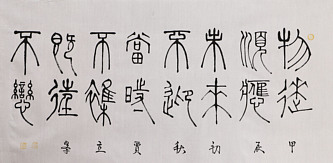 物來
順應
未來
不迎
當時
不雜
既過
不戀
甲辰初秋